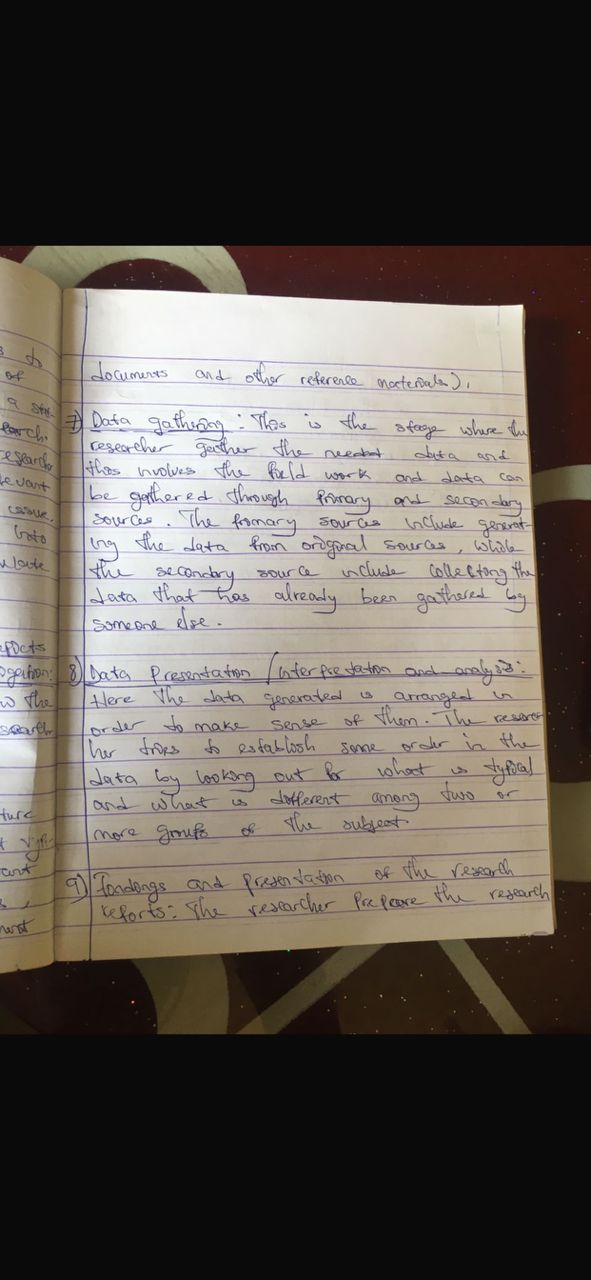 documents and other reference materials).
7) Data gathering : This is the stage where the
researcher gather the needed data and
this involves the field work and data can
be gathered through primary and secondary
sources. The primary sources include generat-
ing the data from original sources, while
the secondary source include collecting the
data that has already been gathered by
someone else.
8) Data Presentation / interpretation and analysis:
Here the data generated is arranged in
order to make sense of them. The resear-
her tries to establish some order in the
data by looking out for what is typical
and what is different among two or
more groups of the subject.
9) Findings and Presentation of the research
reports: The researcher prepare the research